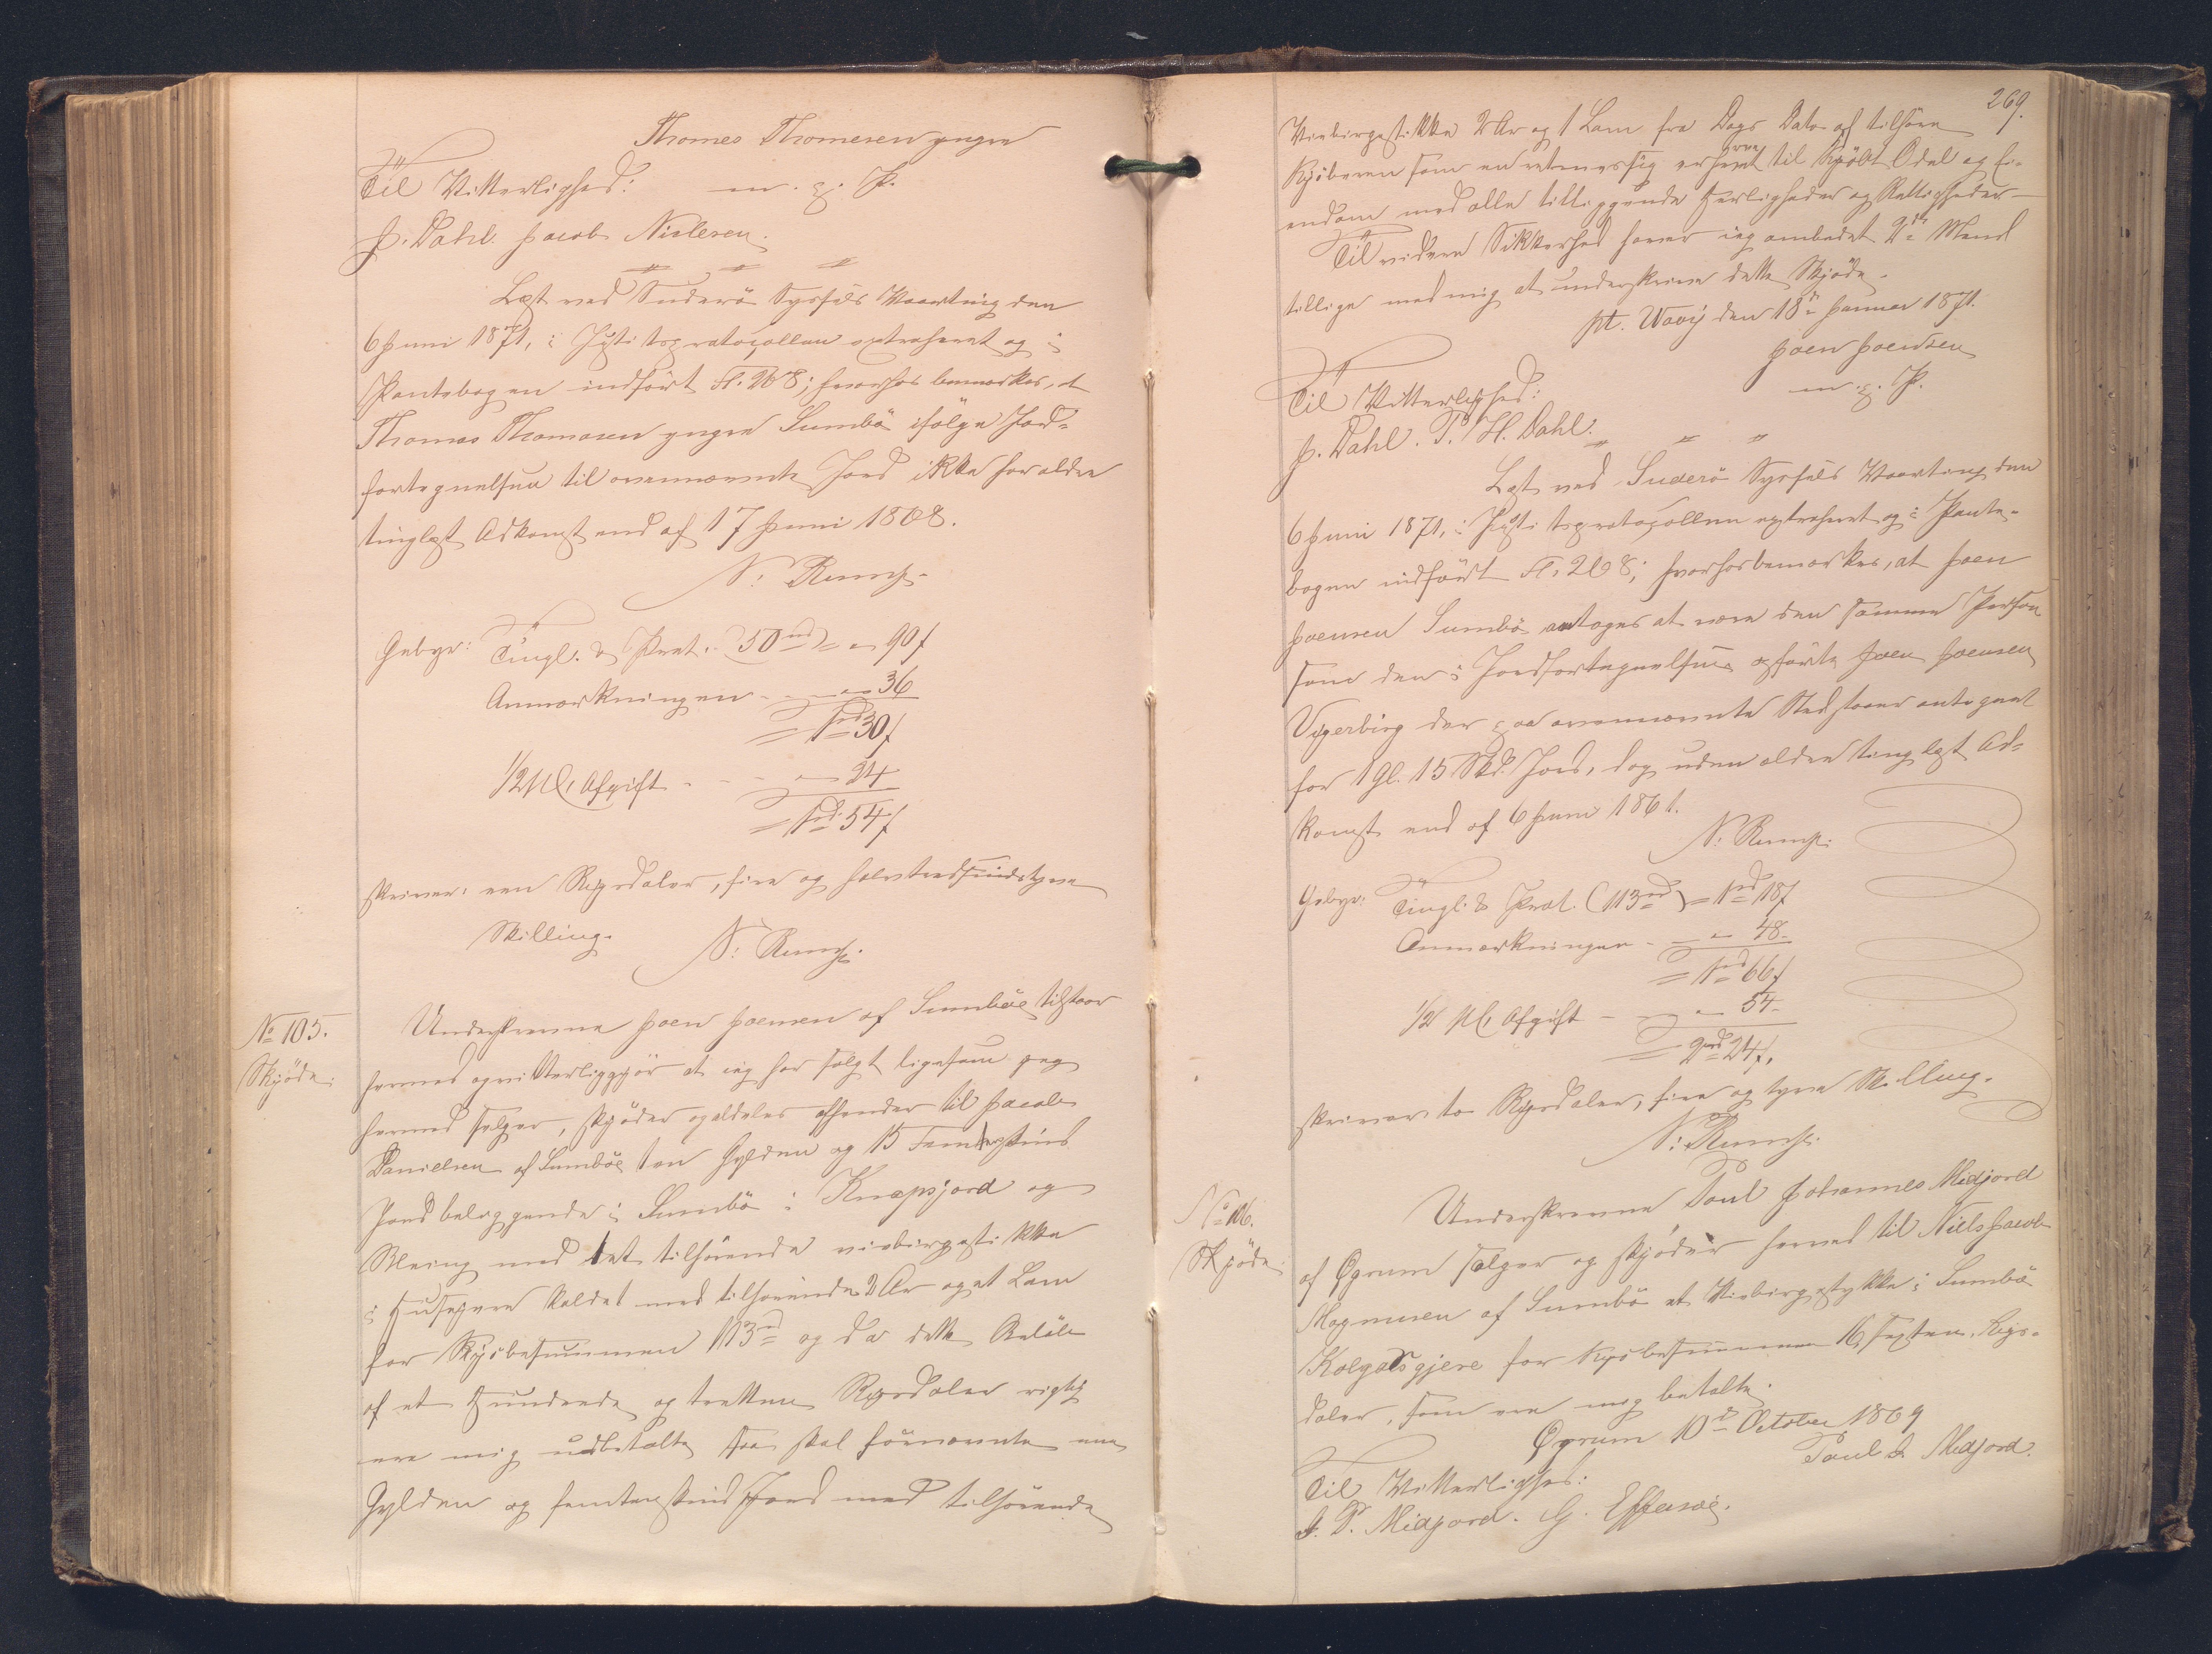 Thomes Thomesen yngre
Til Vitterlighed: m. p. P.
J. Dahl. Jacob Nielsen.
Læst ved Suderø Syssels Vaarting den
6 Juni 1871, i Justitsprotocollen extraheret og i
Pantebogen indført Fl. 268; hvorhos bemærkes, at
Thomas Thomasen yngre Sumbø ifølge Jord-
fortegnelsen til ovennævnte Jord ikke har ældre
tinglæst Adkomst end af 17 Juni 1868.
N: Rump.
Gebyr: Tingl. & Prot. (50 rd) = " 90 ſ
Anmærkningen - - " 36
= 1 rd 30 ſ
1/2 pCt Afgift - - - " 24
= 1 rd 54 ſ
skriver: een Rigsdaler, fire og halvtredsindstyve
Skilling.
N: Rump.
No 105.
Skjøde.
Underskrevne Joen Joensen af Sumbøe tilstaar
hermed og vitterliggjør at jeg har solgt ligesom jeg
hermed sælger, skjøder og aldeles afhænder til Jacob
Danielsen af Sumbøe een Gylden og 15 Femten Skind
Jord beliggende i Sumbø i Knapsjord og
med det tilhørende vinbirgestikke
i Husagere kaldet med tilhørende 2 Ær og et Lam
for Kjøbesummen 113 rd og da dette Beløb
af et Hundrede og tretten Rigsdaler rigtig
ere mig udbetalte saa skal fornævnte een
Gylden og femten skind Jord med tilhørende
269.
Vinbirgestikke 2 Ær og 1 Lam fra Dags Dato af tilhøre
Kjøberen som en retmæssig erhvervet til Kjøbt Odel og Ei-
endom med alle tilliggende Herligheder og Rettigheder.
Til videre Sikkerhed haver jeg ombedet 2de Mænd
tillige med mig at underskrive dette Skjøde.
pt. Waaij den 18de Januar 1871.
Joen Joensen
m. p. P.
Til Vitterlighed:
J. Dahl. P. H. Dahl.
Læst ved Suderø Syssels Vaarting den
6 Juni 1871, i Justitsprotocollen extraheret og i Pante-
bogen indført Fl. 268; hvorhos bemærkes, at Joen
Joensen Sumbø antages at være den samme Person
som den i Jordfortegnelsen opførte Joen Joensen
Vigerbirg der paa ovennævnte Sted staaer antegnet
for 1 Gl. 15 Skd. Jord, dog uden ældre tinglæst Ad-
komst end af 6 Juni 1861.
N: Rump.
Gebyr: Tingl. & Prot. (113 rd) = 1 rd 18 ſ
Anmærkningen - - " 48 -
= 1 rd 66 ſ
1/2 pCt Afgift - - " 54 -
= 2 rd 24 ſ.
skriver to Rigsdaler, fire og tyve Skilling.
N: Rump.
No 106.
Skjøde.
Underskrevne Poul Johannes Midjord
af Øgrum sælger og skjøder herved til Niels Jacob
Magnusen af Sumbø et Vinbirgestykke i Sumbø
Kolgadsgjere for Kjøbesummen 16, sexten, Rigs-
daler, som ere mig betalte.
Øgrum 10de October 1869
Poul J. Midjord.
Til Vitterlighed:
J. P. Midjord. G. Effersøe.